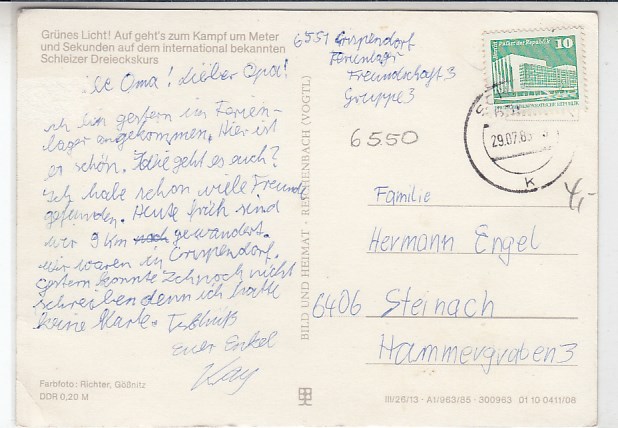 Grünes Licht! Auf geht's zum Kampf um Meter
und Sekunden auf dem international bekannten
Schleizer Dreieckskurs
Oma! Lieber Opa!
ich bin gestern im Ferien-
lager angekommen. Hier ist
es schön. Wie geht es euch?
Ich habe schon viele Freunde
gefunden. Heute früh sind
wir 9 km noch gewandert.
wir waren in Crispendorf.
gestern konnte ich noch nicht
schreiben denn ich hatte
keine Marke. Tschüß
Euer Enkel
Kay
Farbfoto: Richter, Gößnitz
DDR 0,20 M
BILD UND HEIMAT · REICHENBACH (VOGTL)
6551 Crispendorf
Ferienlager
Freundschaft 3
Gruppe 3
6550
Palast der Republik 10
29.07.85
k
4,-
Familie
Hermann Engel
6406 Steinach
Hammergraben 3
III/26/13 · A1/963/85 · 300963 01 10 0411/08